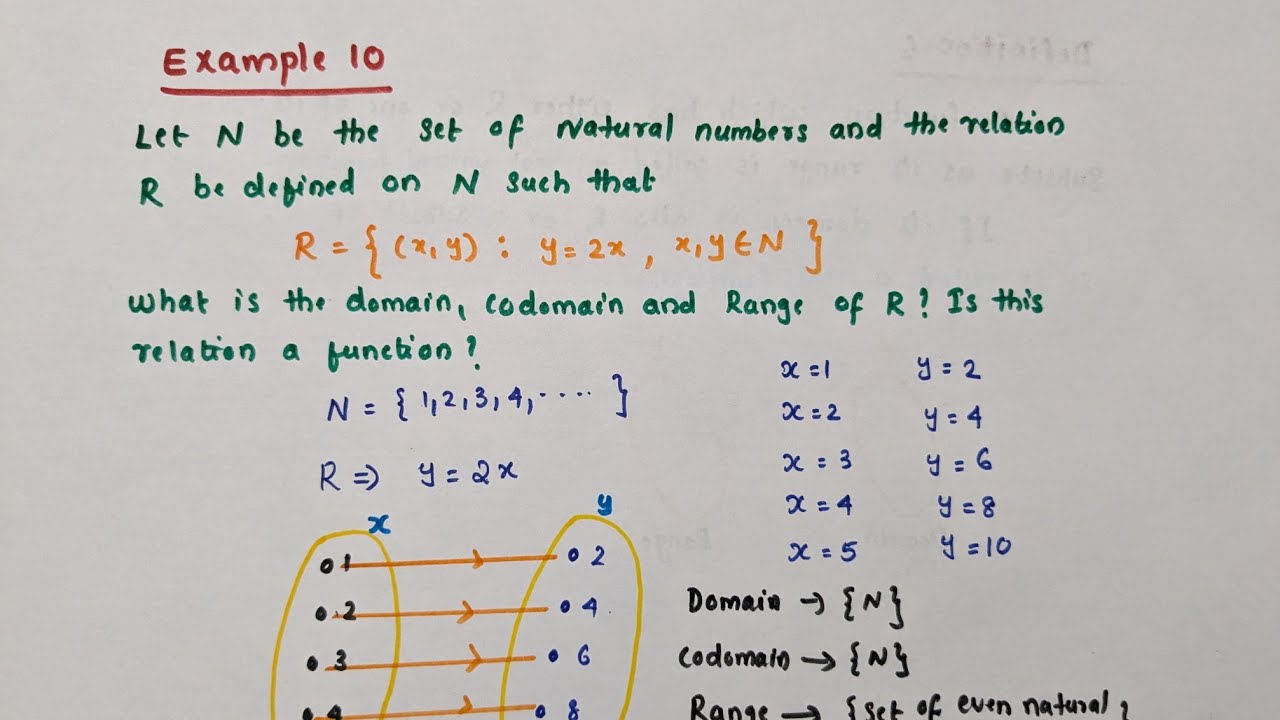 Example 10
Let N be the set of Natural numbers and the relation
R be defined on N such that
R = { (x,y) : y=2x , x,y ∈ N }
What is the domain, codomain and Range of R? Is this
relation a function?
N = { 1,2,3,4,.... }
R ⇒ y = 2x
x=1 y = 2
x=2 y = 4
x = 3 y = 6
x = 4 y = 8
x = 5 y = 10
x y
1 2
2 4
3 6
4 8
Domain → {N}
Codomain → {N}
Range → {set of even natural